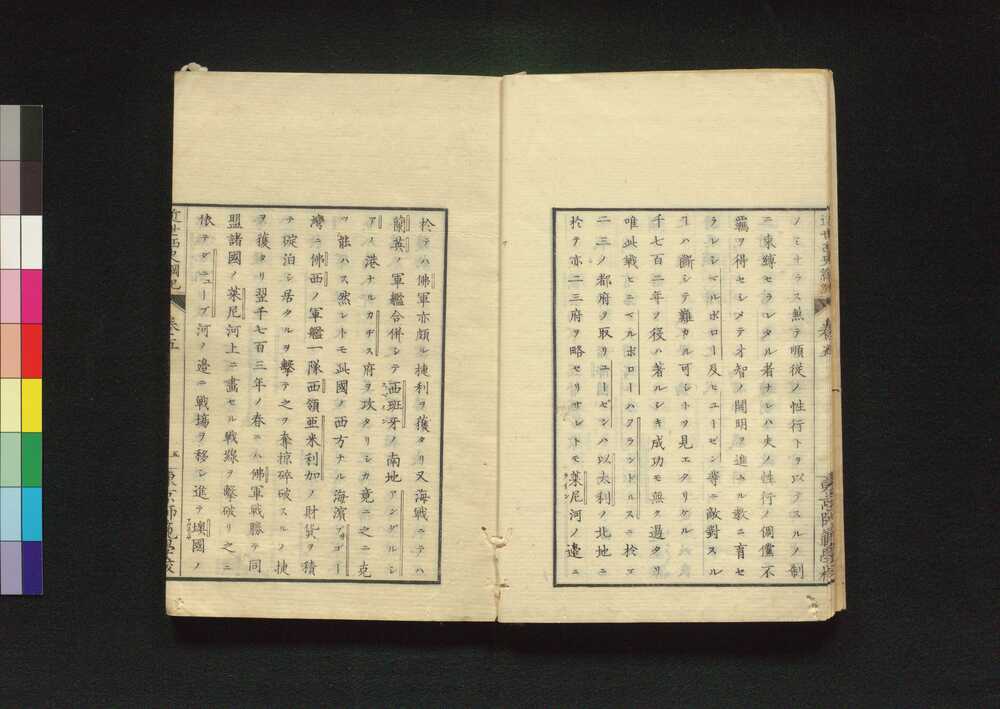 ノミナラス無テ順従ノ性行トヲ以テスルノ制
ニ束縛セラレタル者ナレハ夫ノ性行ノ倜儻不
羈ヲ得セシメテ才智ノ開明ヲ進ムル教ニ育セ
ラレシベルボロー及ヒユーゼン等ニ敵對スル
ハ斷シテ難カル可シトヲ見エタリケル
千七百二年ノ役ハ著ルシキ成功モ無ク過タリ
唯此戦ヒニベルボローハフランドルスニ於エ
二三ノ都府ヲ取リユーゼンハ以太利ノ北地ニ
於テ亦二三府ヲ略セリサレトモ萊尼河ノ邊ニ
於テハ佛軍亦頗ル捷利ヲ獲タリ又海戦ニテハ
蘭英ノ軍艦合併シテ西班牙ノ南地アンダルシ
アノ港ナルカヂス府ヲ攻タリシカ竟ニ之ニ克
ツ能ハス然レトモ此國ノ西方ナル海濱ヴィゴー
灣ニ佛西ノ軍艦一隊西領亜米利加ノ財貨ヲ積
テ碇泊シ居タルヲ擊テ之ヲ奪掠碎破スルノ捷
ヲ獲タリ翌千七百三年ノ春ニハ佛軍戰勝テ同
盟諸國ノ萊尼河上ニ畫セル戰線ヲ擊破リ之ニ
依テダニューブ河ノ邊ニ戰塲ヲ移シ進テ墺國ノ
近世西史綱紀
卷五
五
東京師範學校